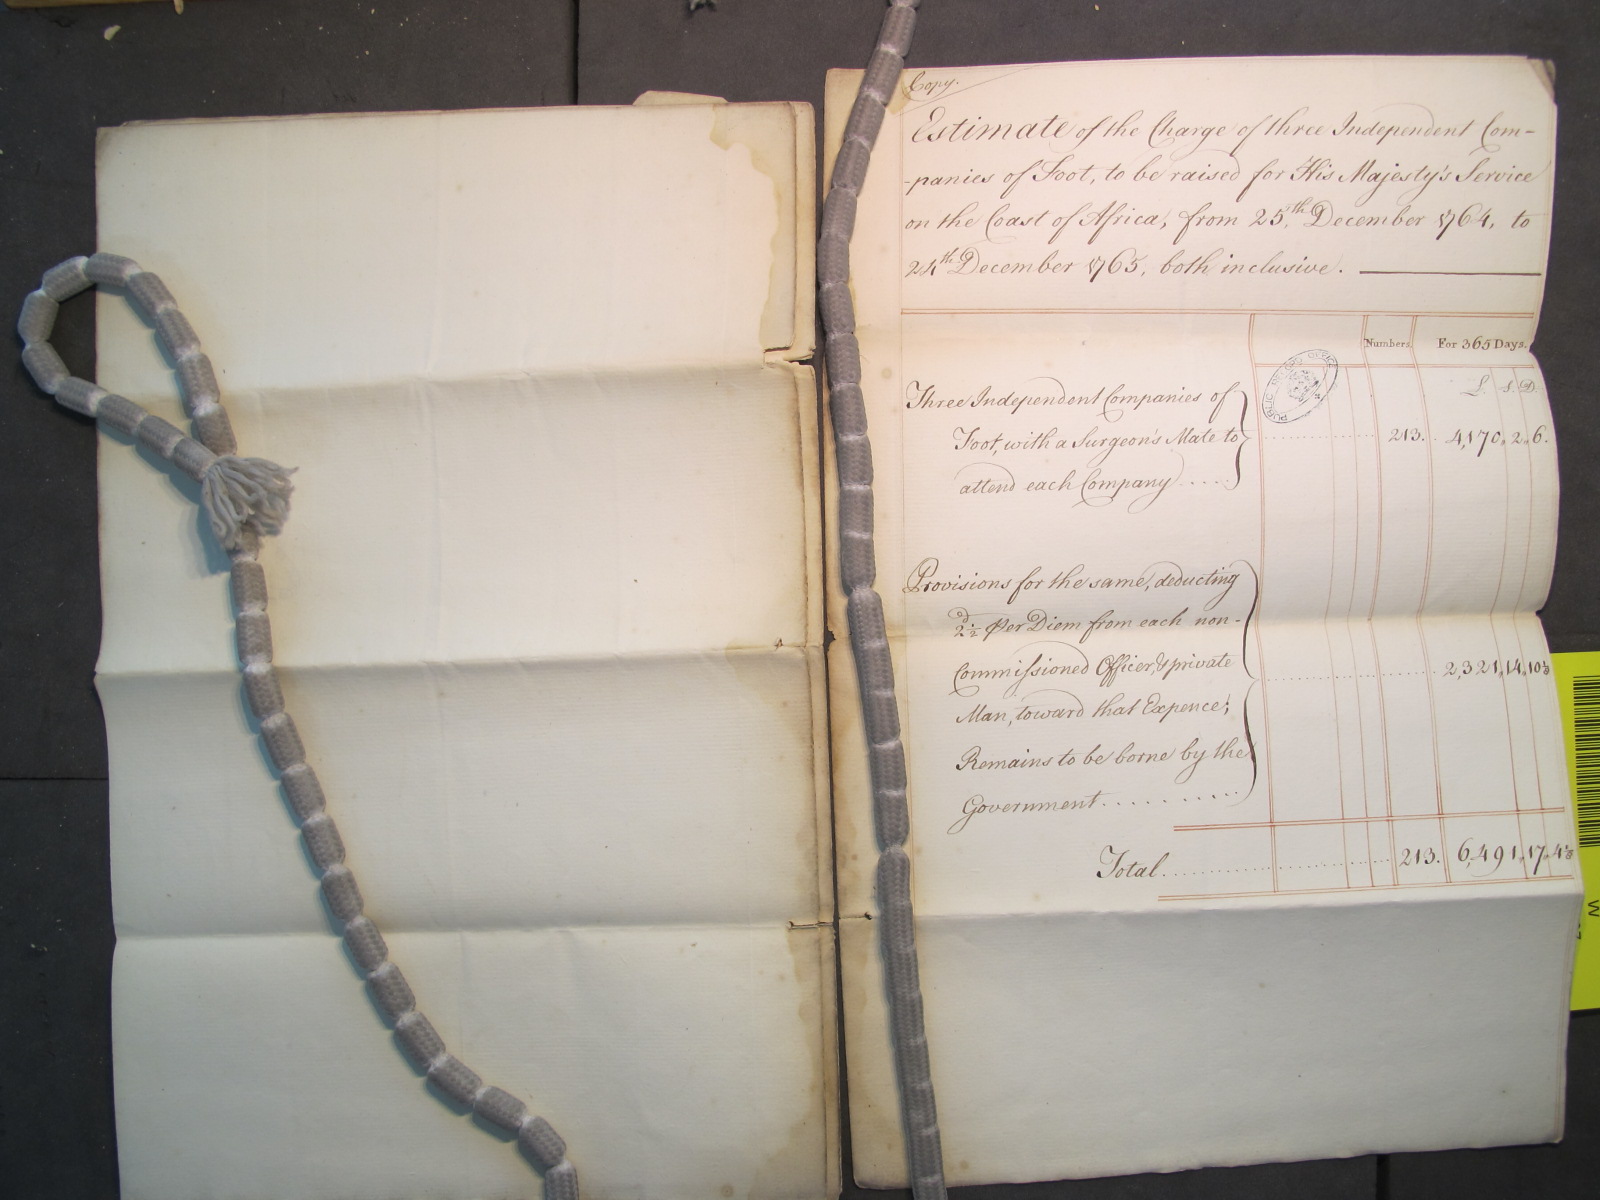 Copy.
Estimate of the Charge of three Independent Com-
-panies of Foot, to be raised for His Majesty's Service
on the Coast of Africa, from 25th December 1764, to
24th December 1765, both inclusive.
Numbers. For 365 Days.
£. S. D.
PUBLIC RECORD OFFICE
Three Independent Companies of
Foot, with a Surgeon's Mate to 213. 4,170, 2, 6.
attend each Company
Provisions for the same, deducting
2½d Per Diem from each non-
Commissioned Officer & private 2,321, 14, 10
Man, toward that Expence;
Remains to be borne by the
Government
Total 213. 6,491, 17, 4
W